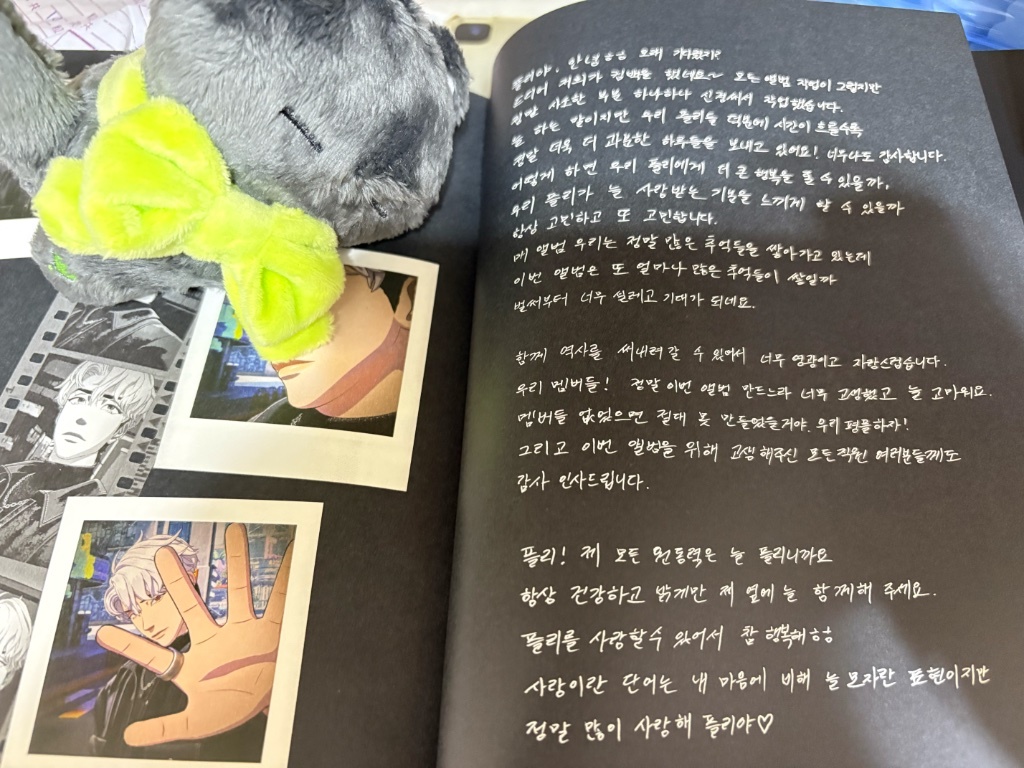 플리야, 안녕ㅎㅎ 오래 기다렸지?
드디어 저희가 컴백을 했네요~ 모든 앨범 작업이 그렇지만
정말 사소한 부분 하나하나 신경써서 작업했습니다.
늘 하는 말이지만 우리 플리들 덕분에 시간이 흐를수록
정말 더욱 더 과분한 하루들을 보내고 있어요! 너무나도 감사합니다.
어떻게 하면 우리 플리에게 더 큰 행복을 줄 수 있을까,
우리 플리가 늘 사랑받는 기분을 느끼게 할 수 있을까
항상 고민하고 또 고민합니다.
매 앨범 우리는 정말 많은 추억들을 쌓아가고 있는데
이번 앨범은 또 얼마나 많은 추억들이 쌓일까
벌써부터 너무 설레고 기대가 되네요.
함께 역사를 써내려갈 수 있어서 너무 영광이고 자랑스럽습니다.
우리 멤버들! 정말 이번 앨범 만드느라 너무 고생했고 늘 고마워요.
멤버들 없었으면 절대 못 만들었을거야. 우리 평플하자!
그리고 이번 앨범을 위해 고생해주신 모든 직원 여러분들께도
감사 인사드립니다.
플리! 제 모든 원동력은 늘 플리니까요
항상 건강하고 밝게만 제 옆에 늘 함께해 주세요.
플리를 사랑할수 있어서 참 행복해ㅎㅎ
사랑이란 단어는 내 마음에 비해 늘 모자란 표현이지만
정말 많이 사랑해 플리야♡